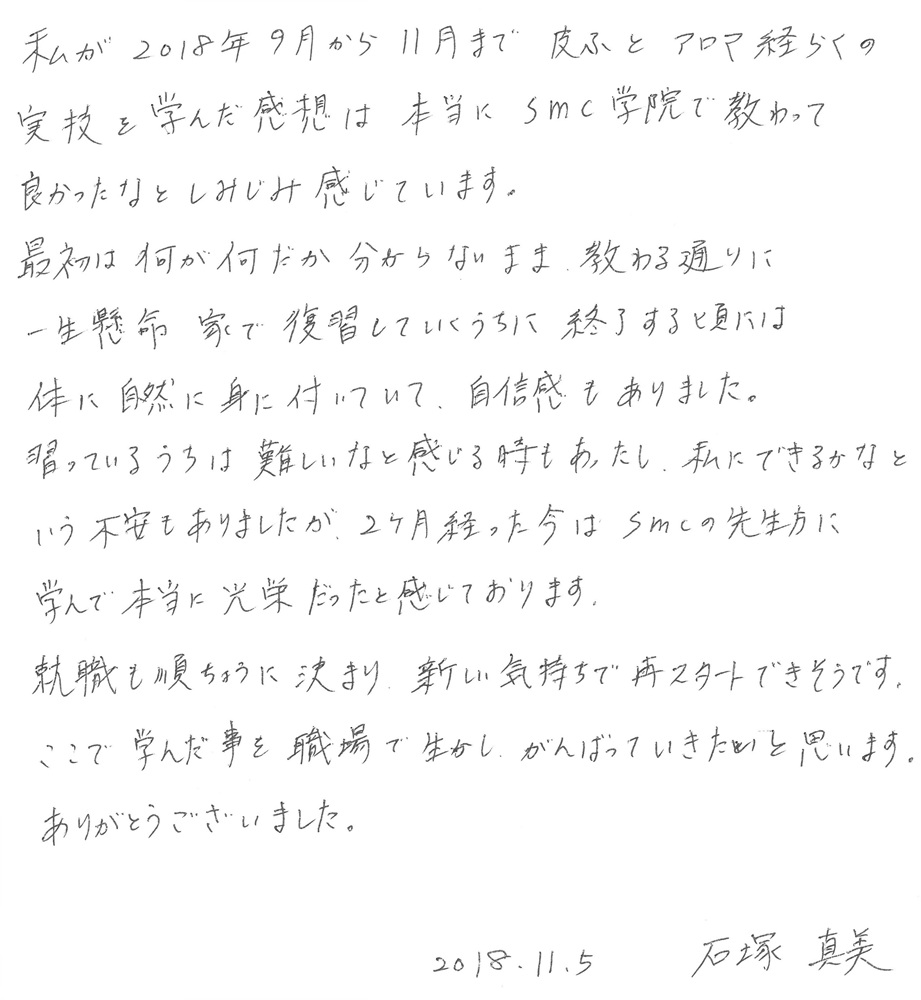 私が 2018年 9月から 11月まで 皮ふと アロマ 経らくの
実技を学んだ感想は 本当に smc学院で教わって
良かったなと しみじみ 感じています。
最初は 何が何だか 分からないまま、教わる通りに
一生懸命 家で 復習していくうちに 終了する頃には
体に 自然に 身に付いていて、自信感もありました。
習っているうちは 難しいなと感じる時もあったし、私にできるかなと
いう 不安もありましたが、2ヶ月経った今は smcの先生方に
学んで 本当に 光栄だったと感じております。
就職も順ちょうに 決まり、新しい気持ちで 再スタートできそうです。
ここで 学んだ事を 職場で 生かし、がんばっていきたいと思います。
ありがとうございました。
2018.11.5 石塚 真美